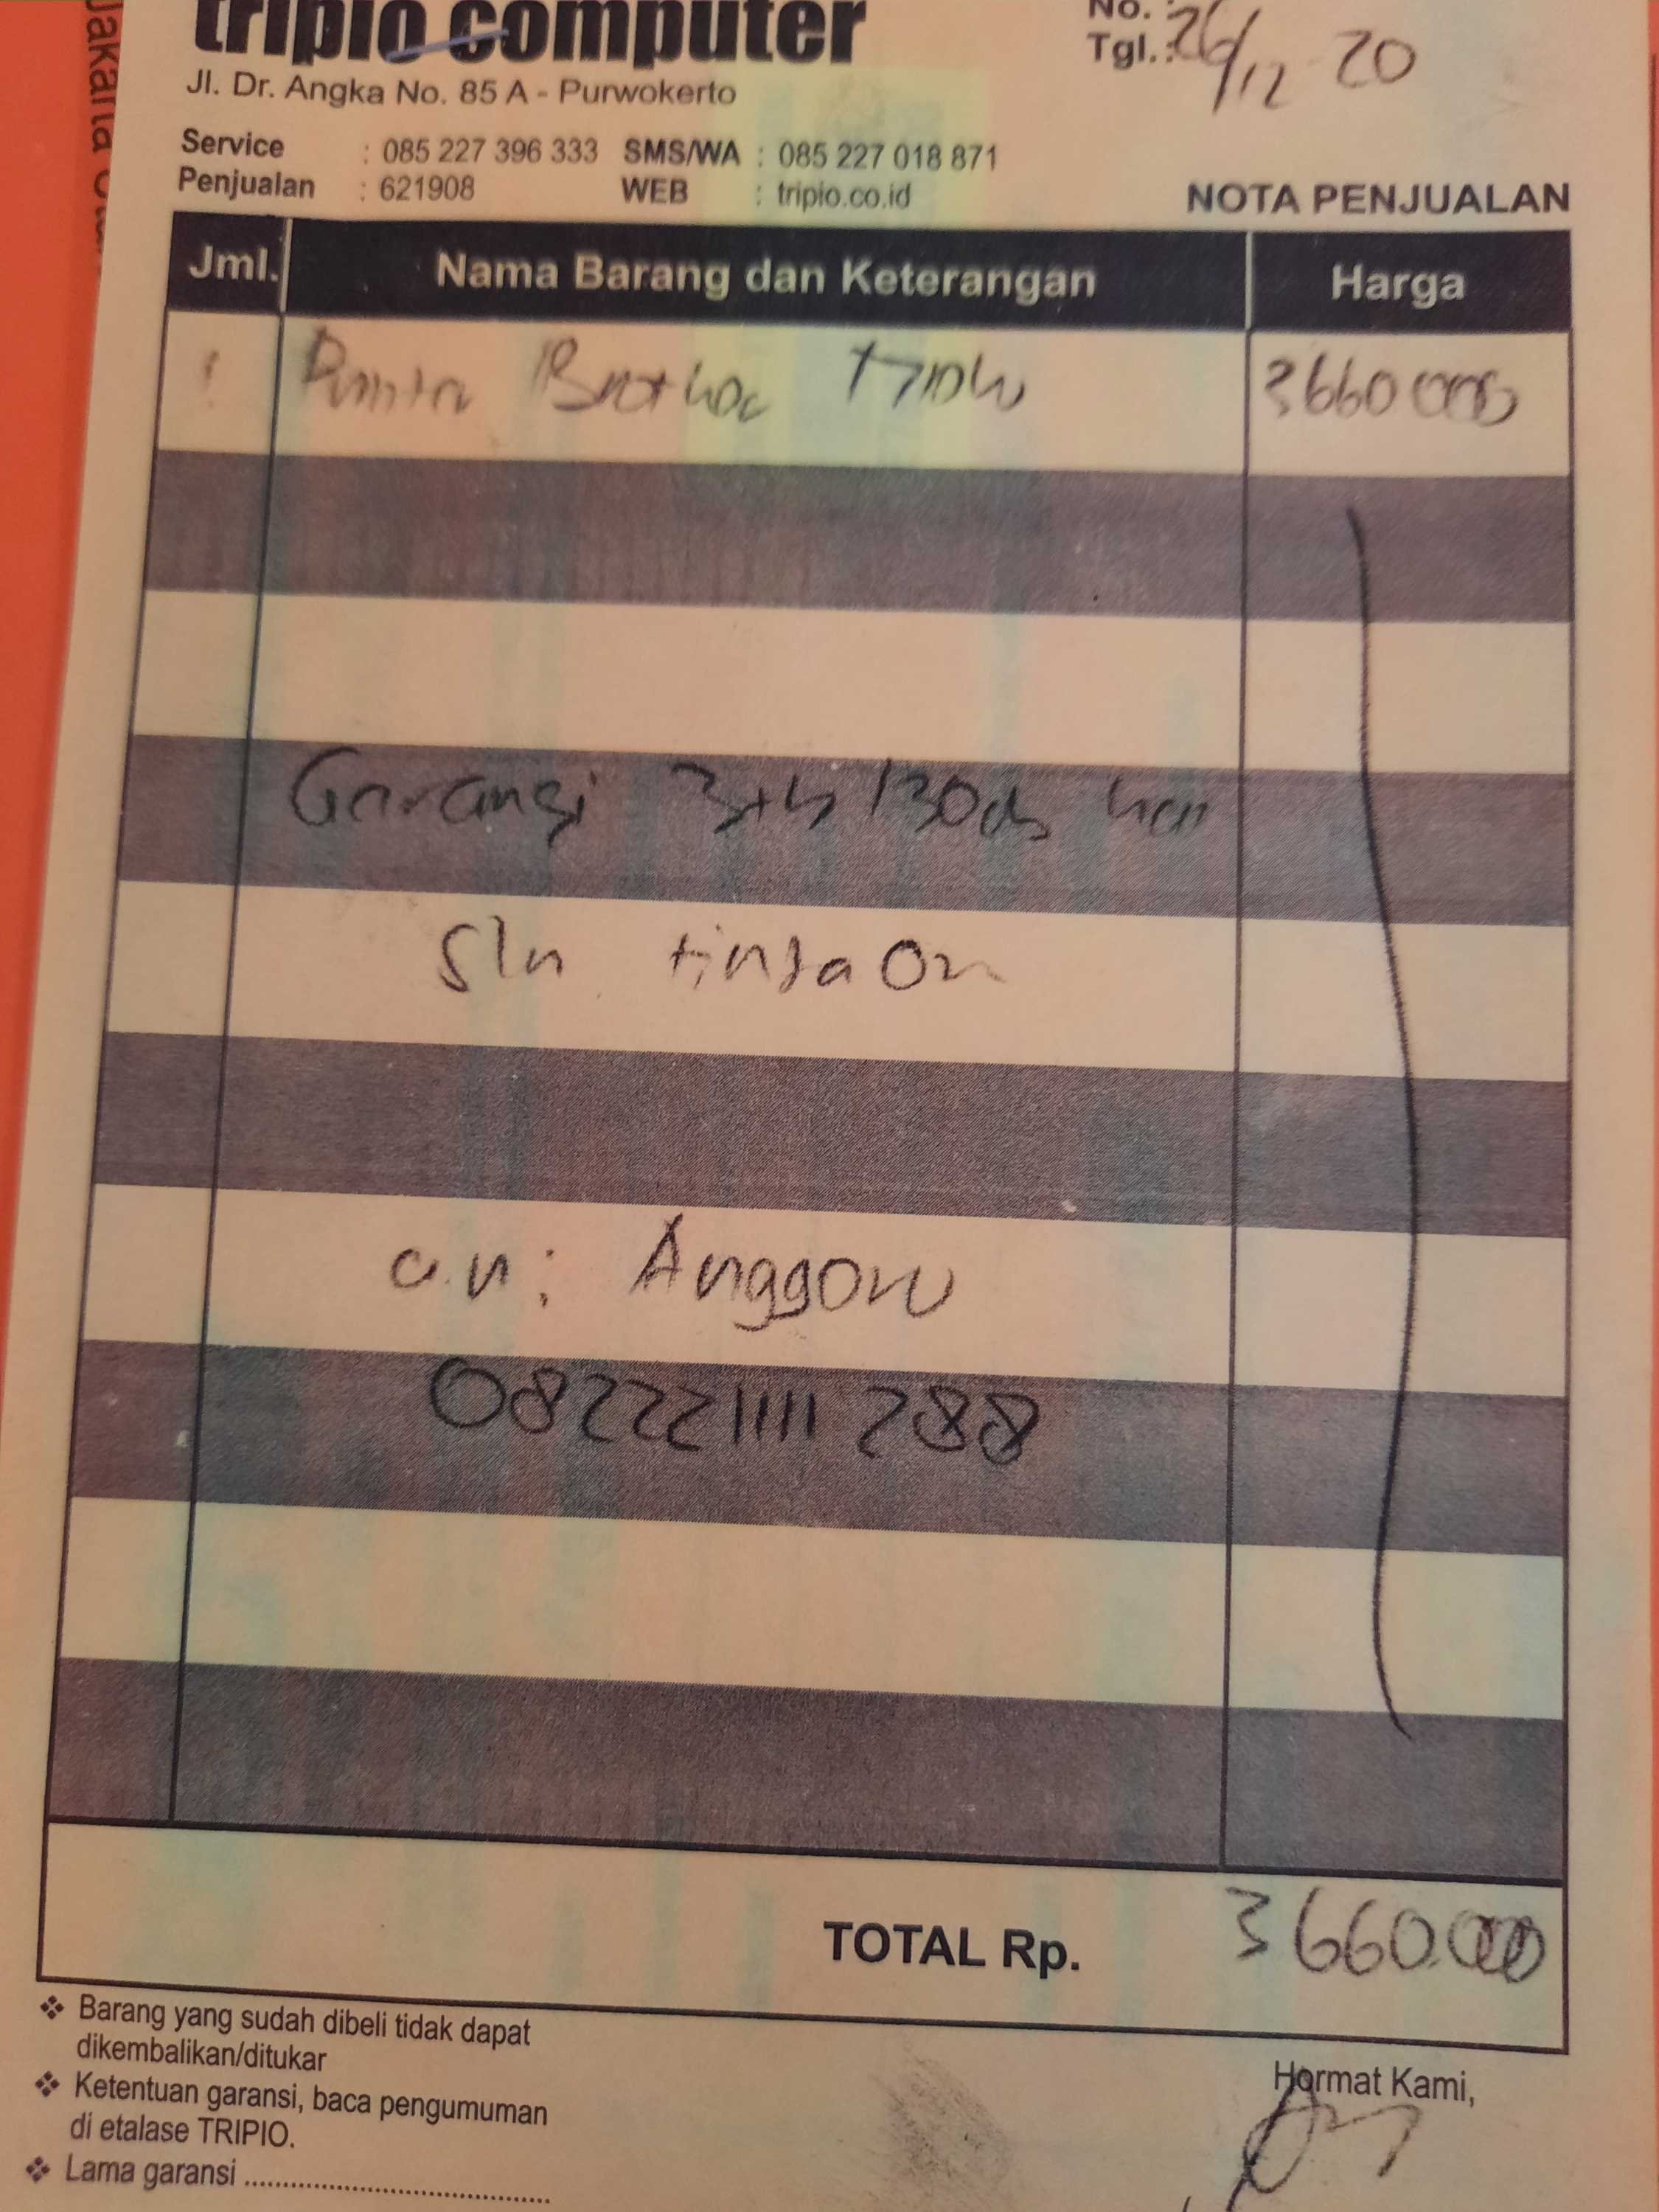 tripio computer
No. :
Tgl. : 26/12 20
Jl. Dr. Angka No. 85 A - Purwokerto
Service : 085 227 396 333 SMS/WA : 085 227 018 871
Penjualan : 621908 WEB : tripio.co.id
NOTA PENJUALAN
Jml. Nama Barang dan Keterangan Harga
1 Printer Brother T710W 3660000
Garansi 3th
tinta On
a.n: Anggoro
082221111288
TOTAL Rp. 3660.000
Barang yang sudah dibeli tidak dapat
dikembalikan/ditukar
Ketentuan garansi, baca pengumuman
di etalase TRIPIO.
Lama garansi
Hormat Kami,
Jakarta